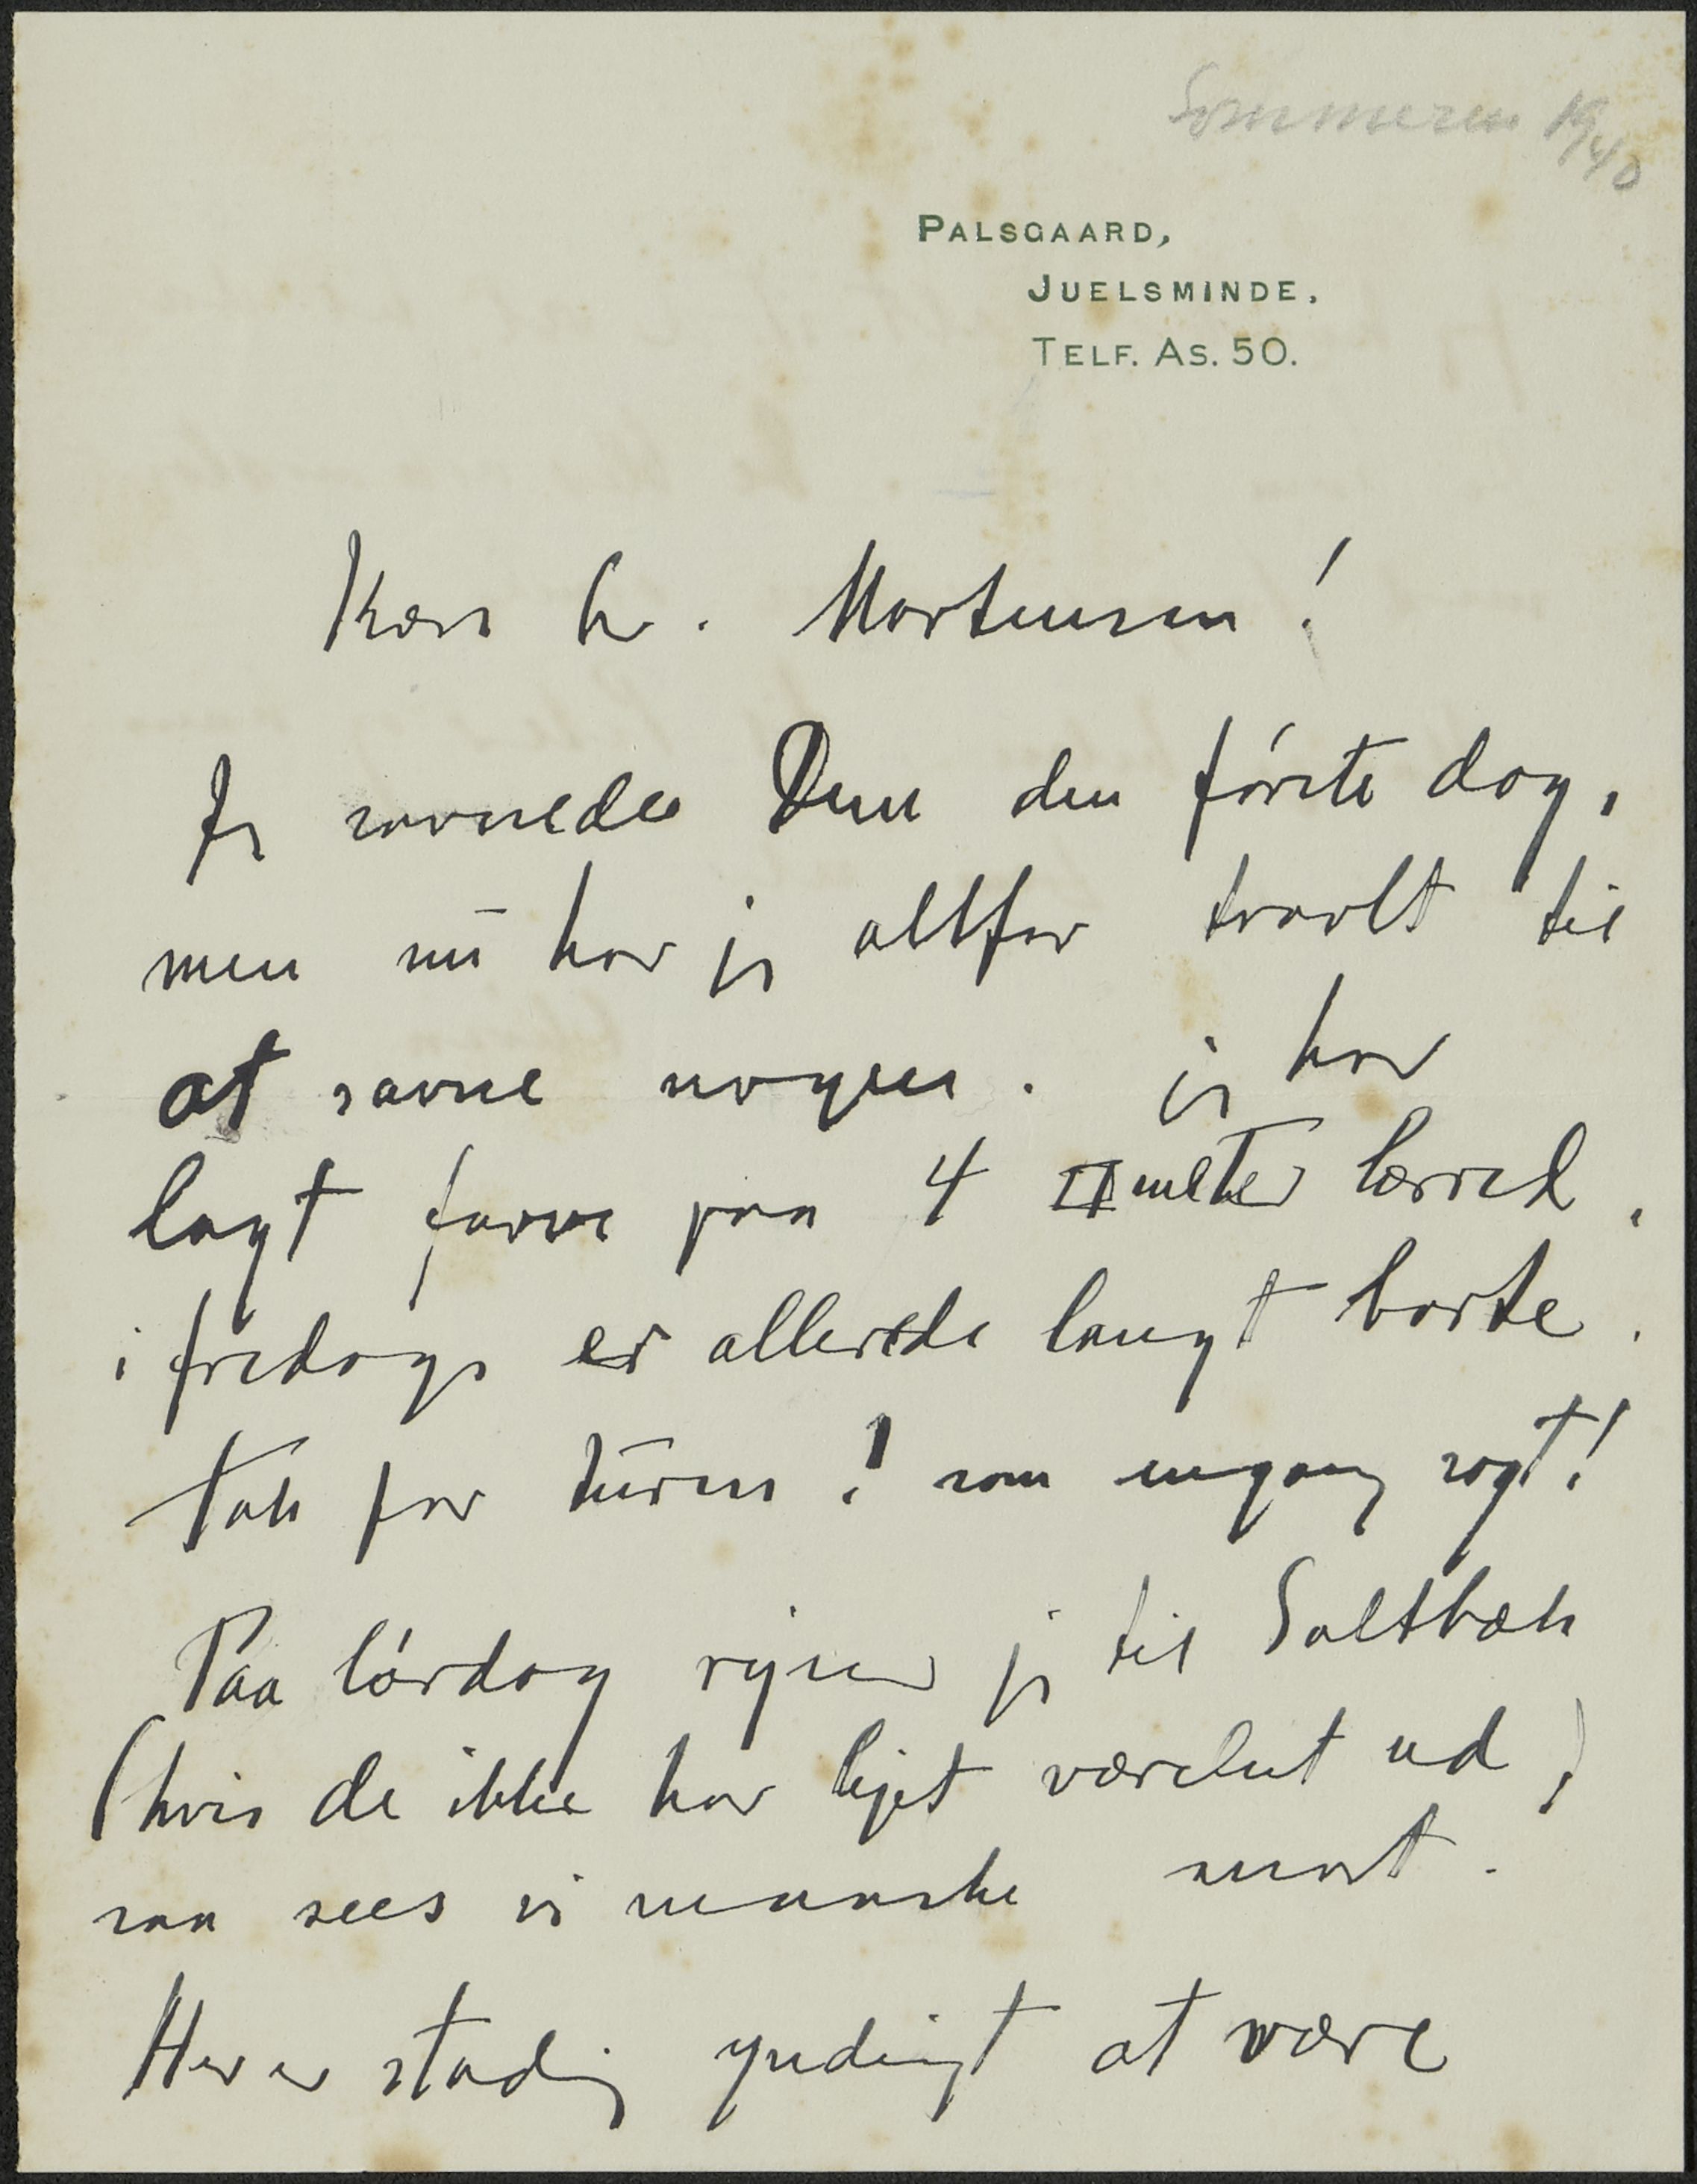 Sommeren 19/40
PALSGAARD,
JUELSMINDE.
TELF. AS. 50.
Kære hr. Mortensen!
Jeg savnede Dem den første dag,
men nu har jeg altfor travlt til
at savne nogen. jeg har
lagt farve paa 4 □meter lærred,
i fredags er allerede langt borte.
Tak for turen! som engang sagt!
Paa lørdag rejser jeg til Saltbæk
(hvis de ikke har lejet værelset ud)
saa sees vi maaske snart.
Her er stadig yndigt at være